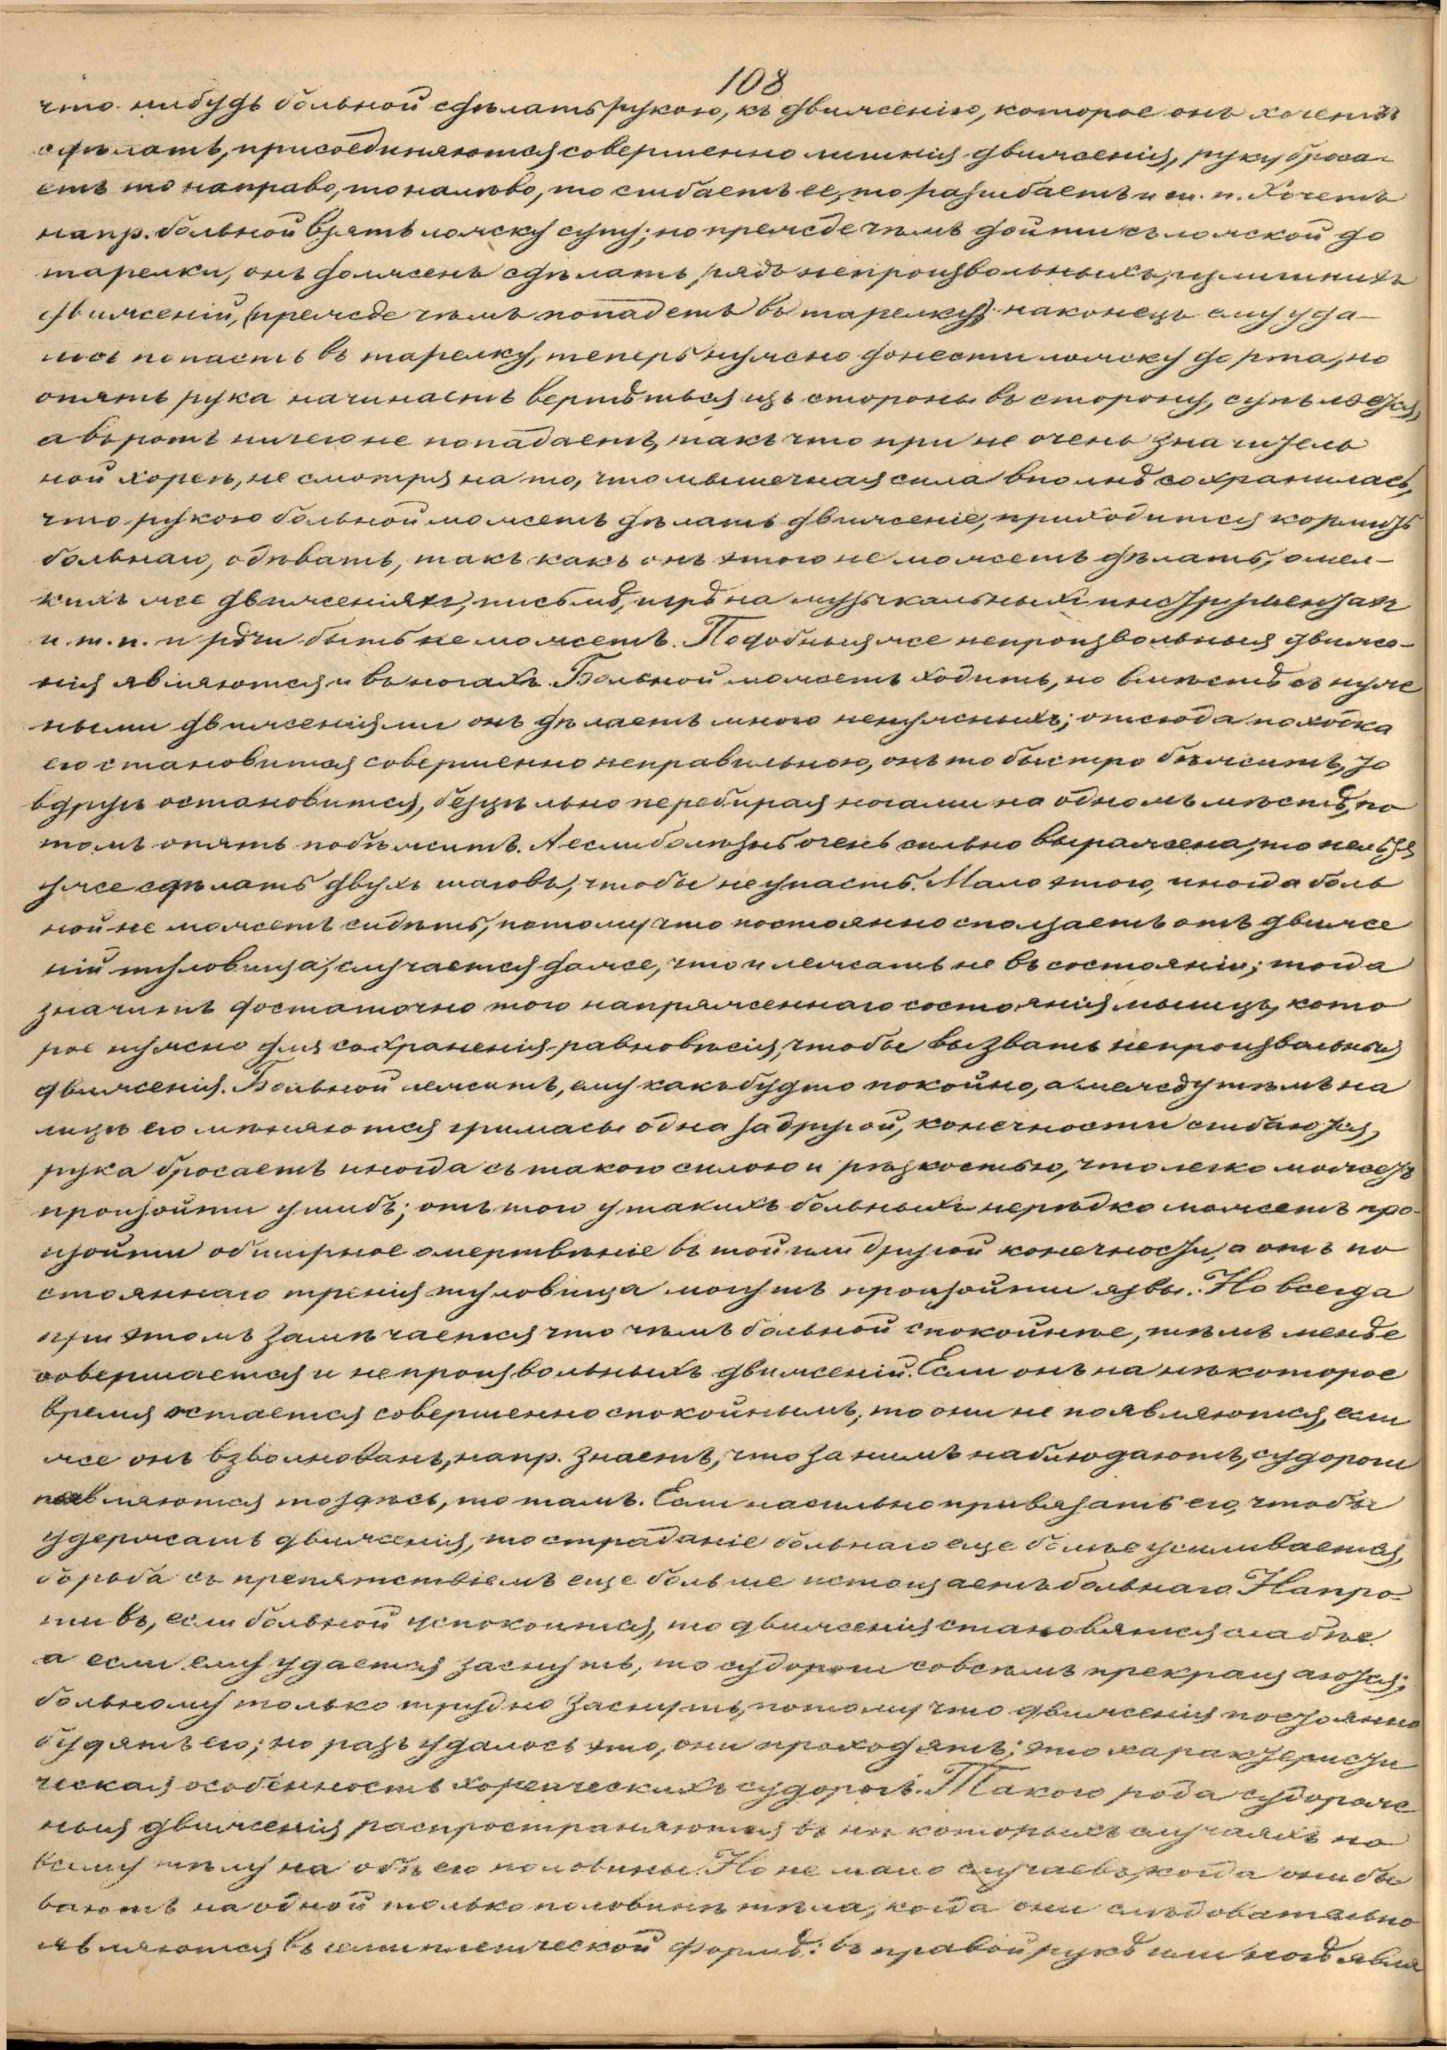 108
что нибудь больной сдѣлать рукою, къ движенію, которое онъ хочетъ
сдѣлать, присоединяются совершенно лишнія движенія, руку броса-
етъ то направо, то налѣво, то сгибаетъ ее, то разгибаетъ и т. п. Хочетъ
напр. больной взять ложку супу; но прежде чѣмъ дойти съ ложкой до
тарелки, онъ долженъ сдѣлать рядъ непроизвольныхъ, излишнихъ
движеній, (прежде чѣмъ попадетъ въ тарелку); наконецъ ему уда-
лось попасть въ тарелку, теперь нужно донести ложку до рта, но
опять рука начинаетъ вертѣться изъ стороны въ сторону, супъ льется,
а въ ротъ ничего не попадаетъ, такъ что при не очень значитель
ной хореѣ, не смотря на то, что мышечная сила вполнѣ сохранилась,
что рукою больной можетъ дѣлать движеніе, приходится кормить
больнаго, одѣвать, такъ какъ онъ этого не можетъ дѣлать, о мел-
кихъ же движеніяхъ, письмѣ, игрѣ на музыкальныхъ инструментахъ
и т. п. и рѣчи быть не можетъ. Подобныя же непроизвольныя движе-
нія являются и въ ногахъ. Больной можетъ ходить, но вмѣстѣ съ нуж
ными движеніями онъ дѣлаетъ много ненужныхъ; отсюда походка
его становится совершенно неправильною, онъ то быстро бѣжитъ, то
вдругъ остановится, безцѣльно перебирая ногами на одномъ мѣстѣ, по
томъ опять побѣжитъ. А если болѣзнь очень сильно выражена, то нельзя
уже сдѣлать двухъ шаговъ, чтобы не упасть. Мало этого, иногда боль
ной не можетъ сидѣть, потому что постоянно сползаетъ отъ движе
ній туловища, случается даже, что и лежать не въ состояніи; тогда
значитъ достаточно того напряженнаго состоянія мышцъ, кото
рое нужно для сохраненія равновѣсія, чтобы вызвать непроизвольныя
движенія. Больной лежитъ, ему какъ будто покойно, а между тѣмъ на
лицѣ его мѣняются гримасы одна за другой, конечности сгибаются,
рука бросаетъ иногда съ такою силою и рѣзкостью, что легко можетъ
произойти ушибъ; отъ того у такихъ больныхъ нерѣдко можетъ про-
изойти обширное омертвѣніе въ той или другой конечности, а отъ по
стояннаго тренія туловища могутъ произойти язвы. Но всегда
при этомъ замѣчается что чѣмъ больной спокойнѣе, тѣмъ менѣе
совершается и непроизвольныхъ движеній. Если онъ на нѣкоторое
время остается совершенно спокойнымъ, то они не появляются, если
же онъ взволнованъ, напр. знаетъ, что за нимъ наблюдаютъ, судороги
появляются то здѣсь, то тамъ. Если насильно привязать его, чтобы
удержать движенія, то страданіе больнаго еще болѣе усиливается,
борьба съ препятствіемъ еще больше истощаетъ больнаго. Напро-
тивъ, если больной успокоится, то движенія становятся слабѣе
а если ему удается заснуть, то судороги совсѣмъ прекращаются;
больному только трудно заснуть, потому что движенія постоянно
будятъ его; но разъ удалось это, они проходятъ; это характеристи
ческая особенность хореическихъ судорогъ. Такого рода судорож
ныя движенія распространяются въ нѣкоторыхъ случаяхъ по
всему тѣлу на обѣ его половины. Но не мало случаевъ, когда они бы
ваютъ на одной только половинѣ тѣла, когда они слѣдовательно
являются въ гемиплегической формѣ: въ правой рукѣ или ногѣ явля